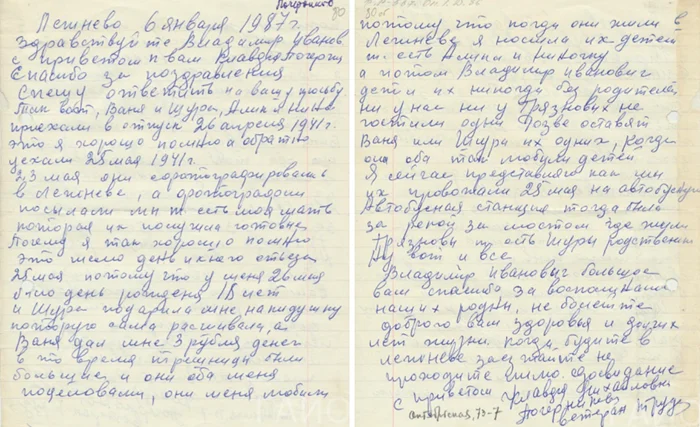 Лежнево 6 января 1987 г.
Здравствуйте Владимир Иванов
с приветом к вам Клавдия
Спасибо за поздравления
Спешу ответить на вашу просьбу.
Так вот, Ваня и Шура, Алик и Нина
приехали в отпуск 26 апреля 1941 г.
это я хорошо помню а обратно
уехали 28 мая 1941 г.
23 мая они сфотографировались
в Лежневе, а фотографии
посылали мы т. есть моя мать
которая их получила готовые
Почему я так хорошо помню
это число день ихнего отъезда
28 мая потому что у меня 26 мая
было день рождения 18 лет
и Шура подарила мне накидушку
которую сама расшивала, а
Ваня дал мне 3 рубля денег
в то время трешницы были
большие и они оба меня
поцеловали, они меня любили
30 об
потому что когда они жили в
Лежневе я носила их детей
т. есть Алика и Ниночку
а потом Владимир Иванович
дети их никогда без родителей
ни у нас ни у Грязновых не
гостили одни Разве оставят
Ваня или Шура их одних, когда
они оба так любили детей
Я сейчас представляю как мы
их провожали 28 мая на автобусную
Автобусная станция тогда была
за рекой за мостом где жили
Грязновы т. есть Шуры родственники
Ну вот и все
Владимир Иванович большое
вам спасибо за воспоминания
наших родных, не болейте
доброго вам здоровья и долгих
лет жизни, когда будите в
Лежневе заезжайте не
проходите мимо. досвидание
с приветом Клавдия Михайловна
ветеран труда
Октябрьская, 73-7